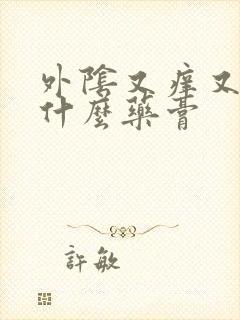 外陰又痒又
什麼藥膏
許敏